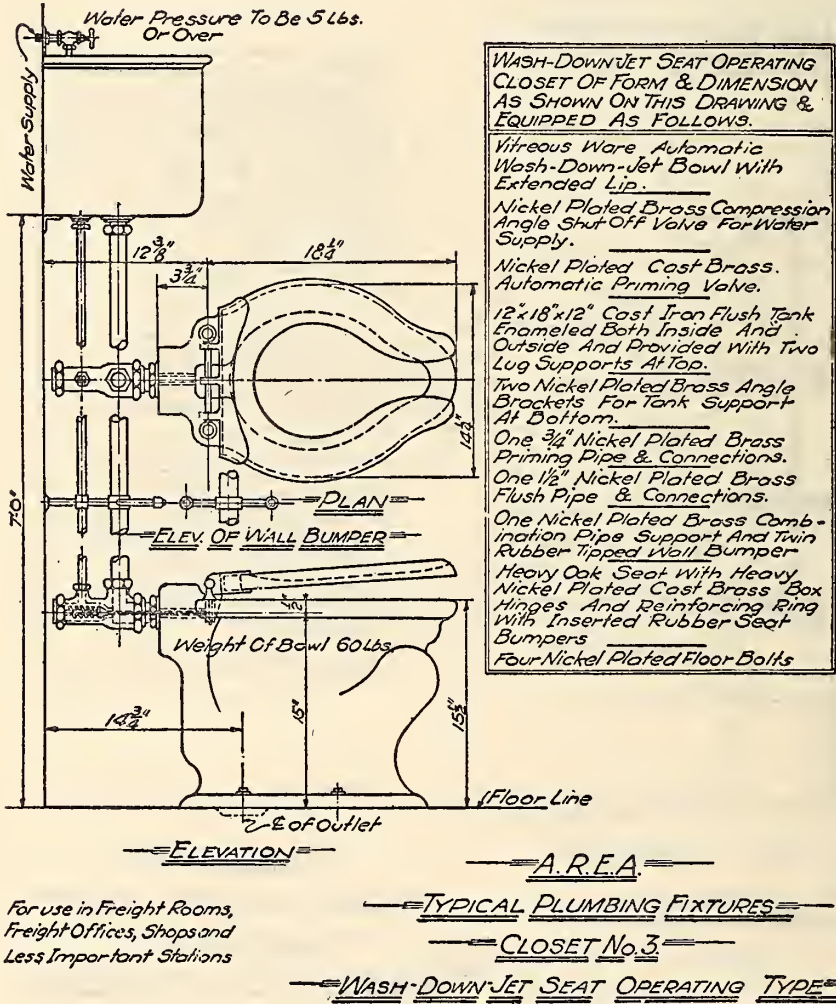 Water Pressure To Be 5 Lbs.
Or Over
Water Supply
12 3/8"
18 1/4"
3 3/4"
14 1/4"
7'-0"
PLAN
ELEV. OF WALL BUMPER
1/2"
Weight Of Bowl 60 Lbs.
14 3/4"
15"
15 1/2"
Floor Line
℄ of Outlet
ELEVATION
WASH-DOWN-JET SEAT OPERATING
CLOSET OF FORM & DIMENSION
AS SHOWN ON THIS DRAWING &
EQUIPPED AS FOLLOWS.
Vitreous Ware Automatic
Wash-Down-Jet Bowl With
Extended Lip.
Nickel Plated Brass Compression
Angle Shut Off Valve For Water
Supply.
Nickel Plated Cast Brass.
Automatic Priming Valve.
12"x18"x12" Cast Iron Flush Tank
Enameled Both Inside And
Outside And Provided With Two
Lug Supports At Top.
Two Nickel Plated Brass Angle
Brackets For Tank Support
At Bottom.
One 3/4" Nickel Plated Brass
Priming Pipe & Connections.
One 1 1/2" Nickel Plated Brass
Flush Pipe & Connections.
One Nickel Plated Brass Comb-
ination Pipe Support And Twin
Rubber Tipped Wall Bumper
Heavy Oak Seat With Heavy
Nickel Plated Cast Brass Box
Hinges And Reinforcing Ring
With Inserted Rubber Seat
Bumpers
Four Nickel Plated Floor Bolts
For use in Freight Rooms,
Freight Offices, Shops and
Less Important Stations
A.R.E.A.
TYPICAL PLUMBING FIXTURES
CLOSET No. 3
WASH-DOWN-JET SEAT OPERATING TYPE